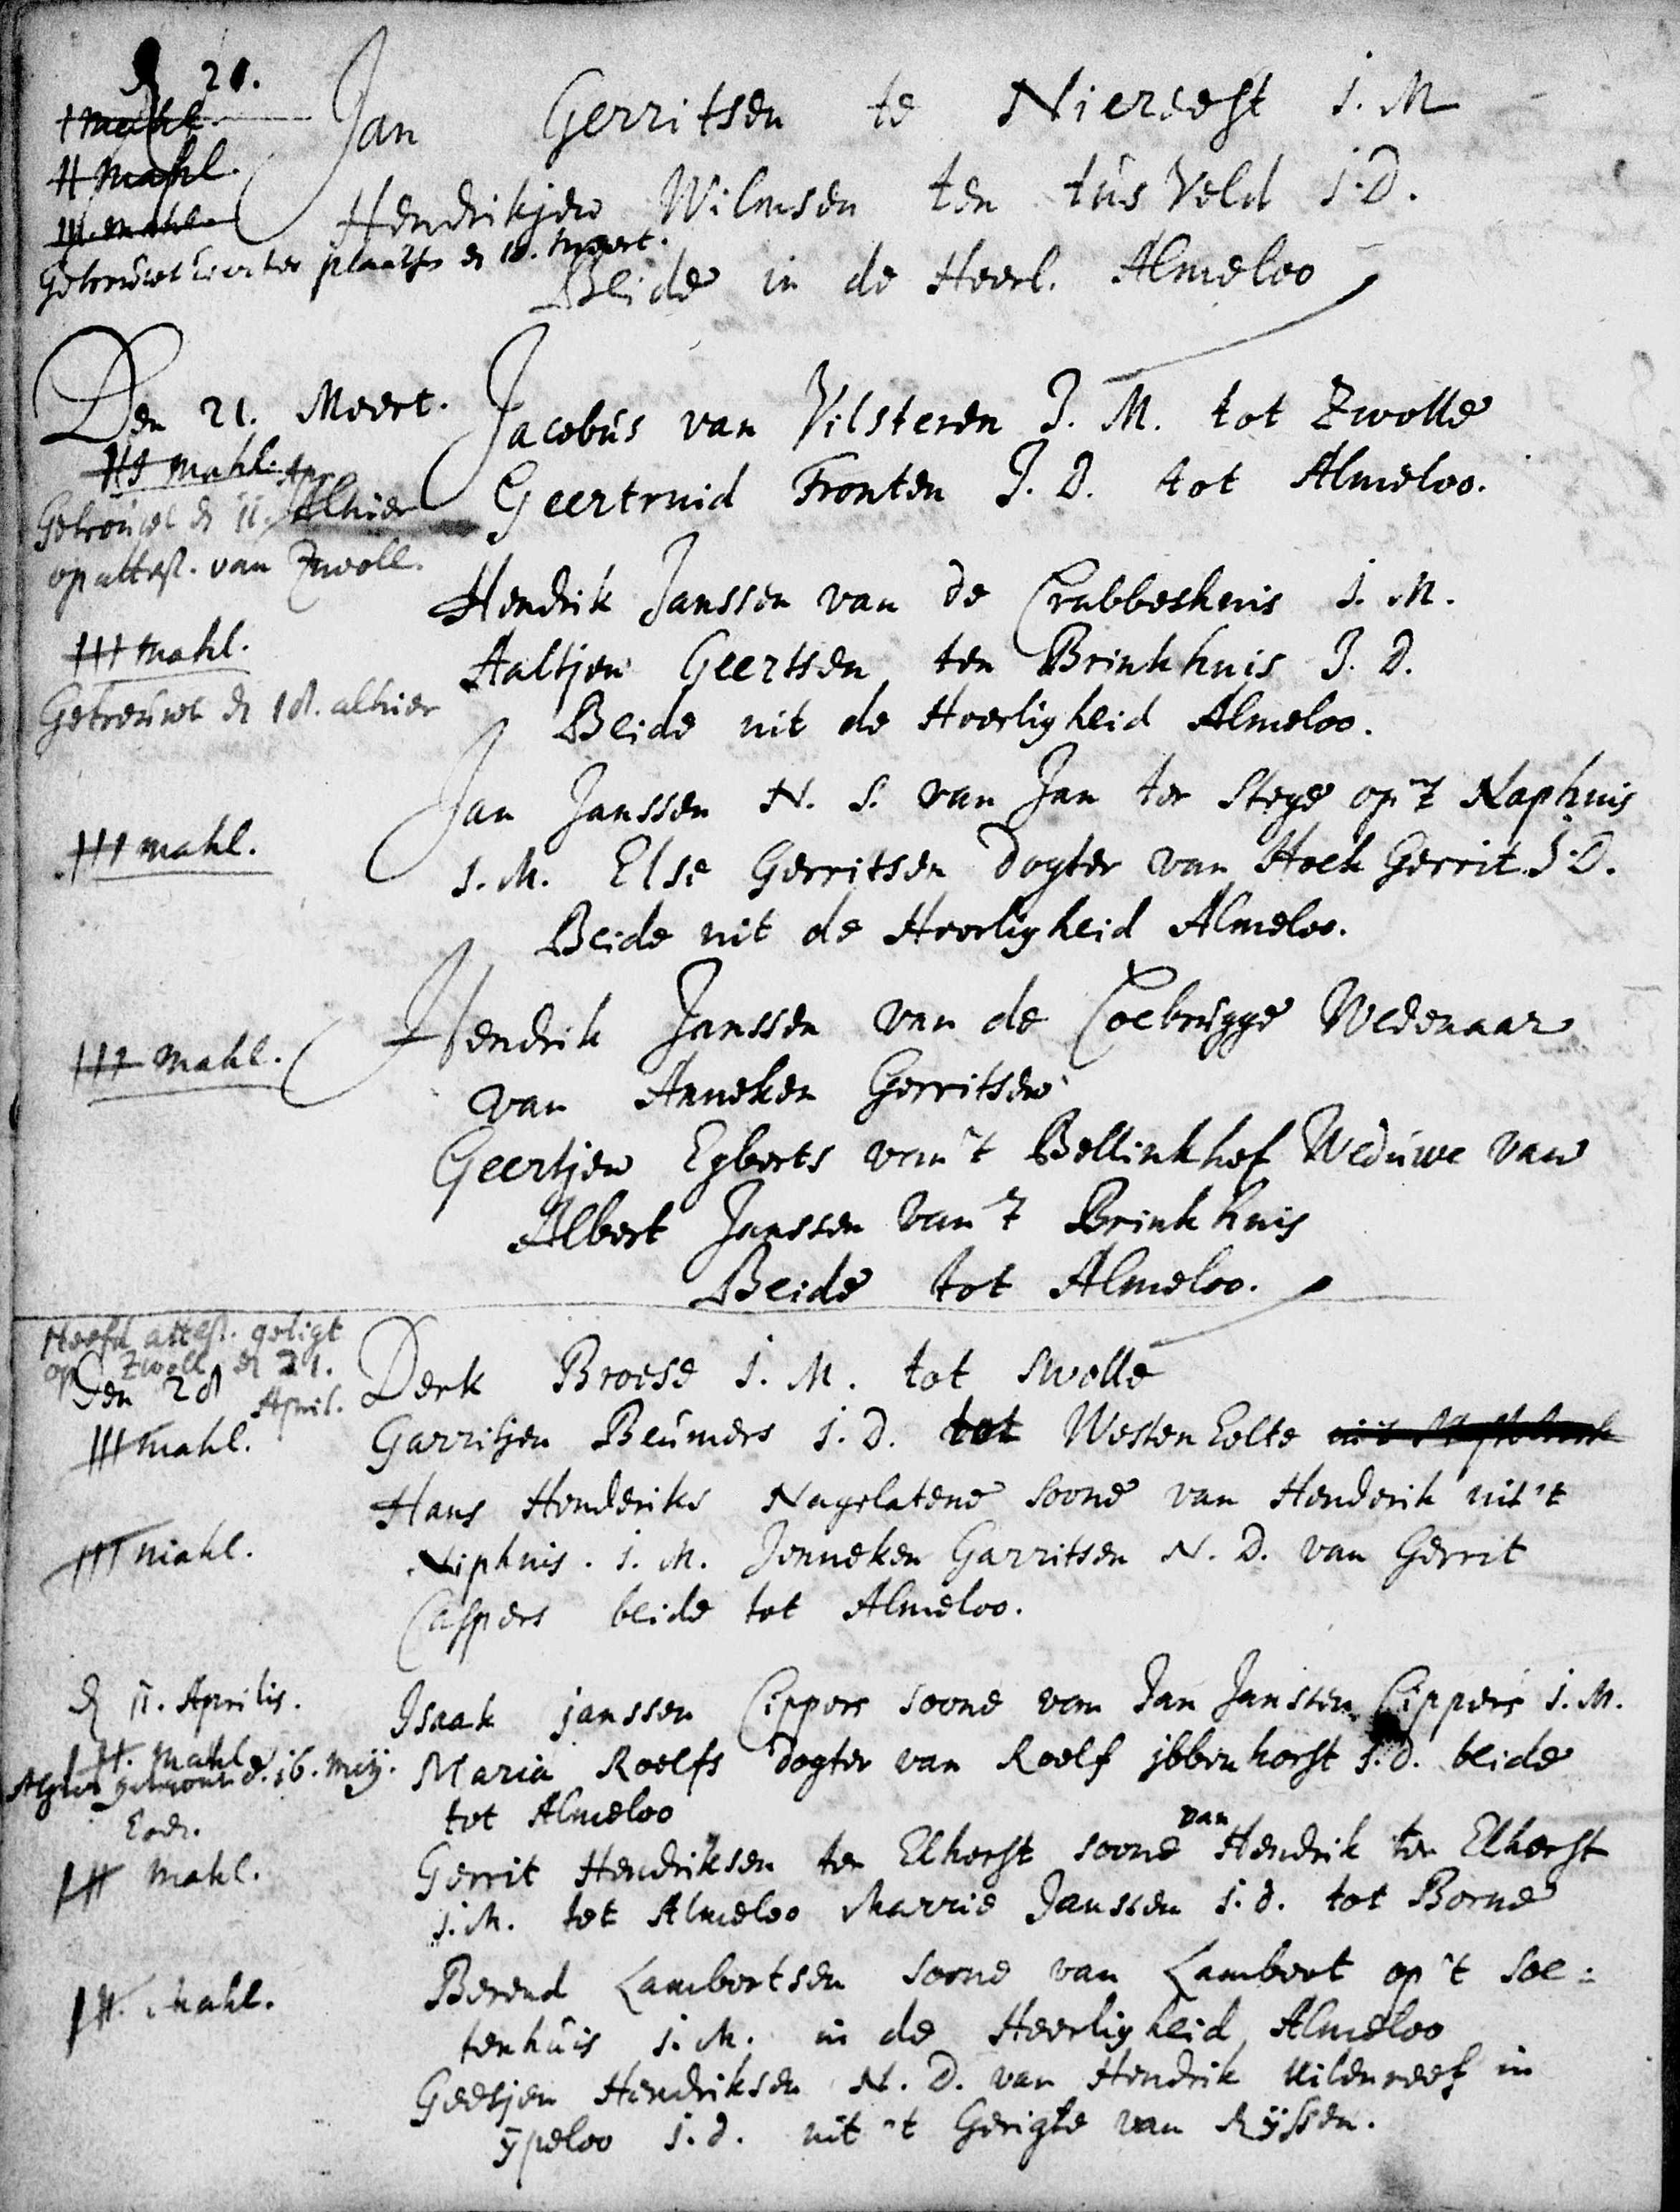 d 21.
I mahl.
II mahl.
III. mahl
Getrouwt hier ter plaatse d 18. Meert.
Jan Gerritsen te Niereest j. M
Hendrikjen Wilmsen ten tús Veld j. D.
Beide in de Heerl. Almeloo
Den 21. Meert.
III mahl. Apr.
Getrouwt d 11. Alhier
op attest. van Zwoll.
Jacobús van Vilsteren J. M. tot Zwolle
Geertruid Fronten J. D. tot Almeloo.
III mahl.
Getrouwt d 18. alhier
Hendrik Janssen van de Crabbeshuis j. M.
Aaltjen Geertsen ten Brinkhuis J. D.
Beide uit de Heerligheid Almeloo.
III mahl.
Jan Janssen N. S. van Jan ter Stege op 't Naphuis
j. M. Else Gerritsen dogter van Hoek Gerrit J. D.
Beide uit de Heerligheid Almeloo.
III mahl.
Hendrik Janssen van de Coebrúgge Wedenaar
van Anneken Gerritsen
Geertjen Egberts van 't Bellinkhof Wedúwe van
Albert Janssen van 't Brinkhuis
Beide tot Almeloo.
Heeft attest. geligt
op Zwoll d 21.
April.
Den 28
III mahl.
Derk Broese j. M. tot Swolle
Garritjen Beúmers j. D. tot Westen Eelte
III mahl.
Hans Henderiks Nagelatene soone van Henderik uit 't
Niphuis. j. M. Jenneken Garritsen N. D. van Gerrit
Caspers beide tot Almeloo.
d 11. Aprilis.
III. mahl
getrout d. 16. Meij.
Isaak janssen Cippers soone van Jan Janssen Cippers j. M.
Maria Roelfs dogter van Roelf jbbenhorst j. d. beide
tot Almeloo
Eod.
III mahl.
Gerrit Hendriksen ter Elhorst soone van Hendrik ter Elhorst
j. M. tot Almeloo Marrie Janssen j. d. tot Borne
III. mahl.
Berend Lambertsen soone van Lambert op 't soe:
tenhúis j. M. in de Heerligheid Almeloo
Geesjen Hendriksen N. D. van Hendrik Uilenreef in
ypeloo j. d. uit 't Gerigte van Rijssen.